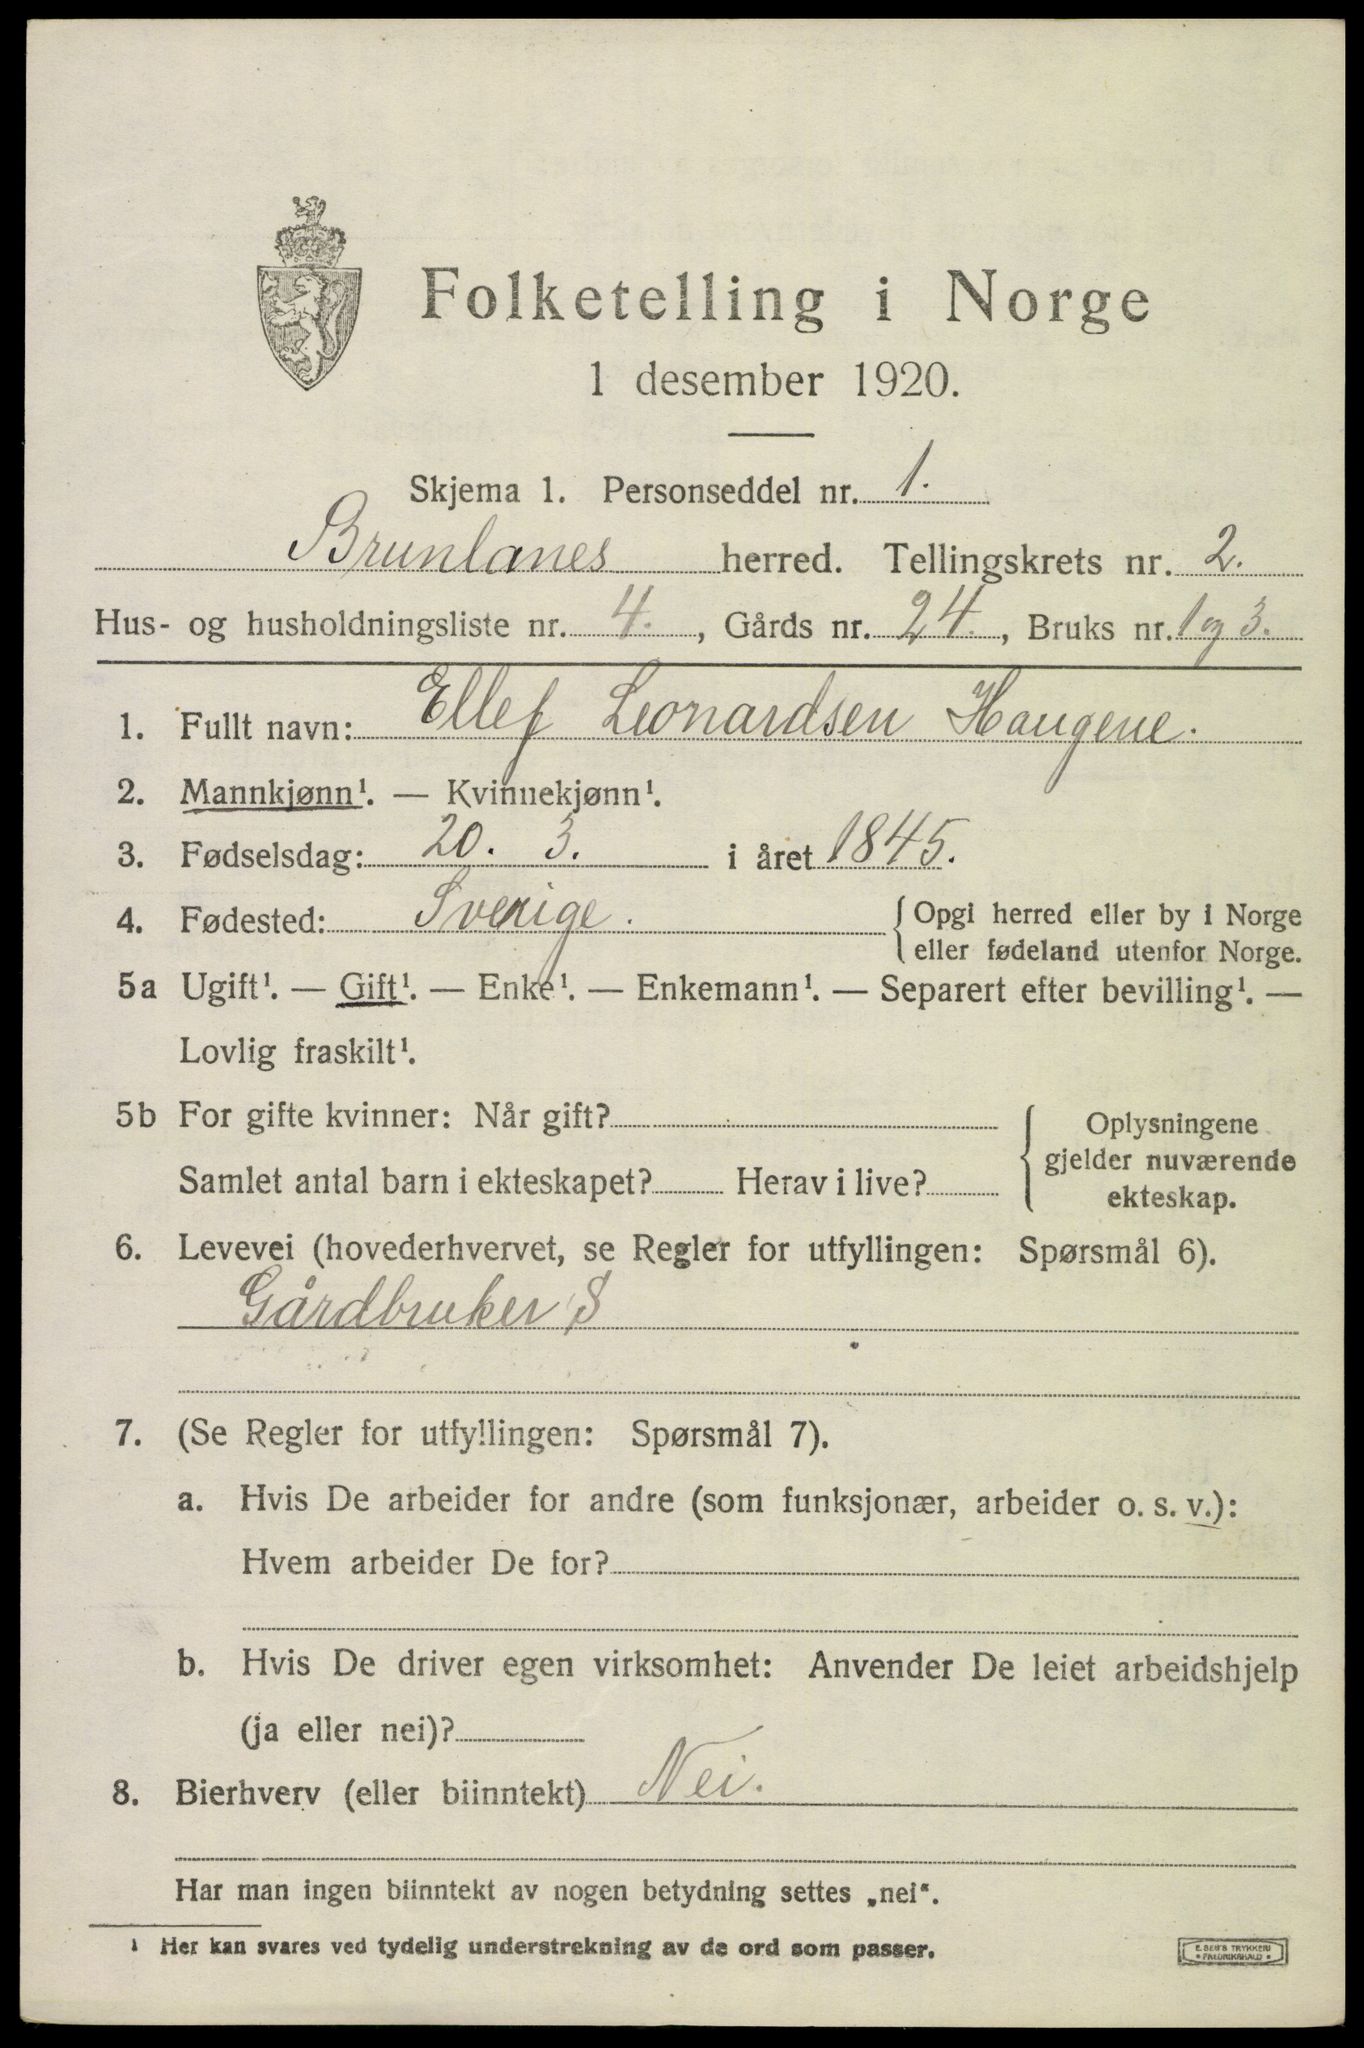 Folketelling i Norge
1 desember 1920.
Skjema 1. Personseddel nr. 1.
Brunlanes herred. Tellingskrets nr. 2.
Hus- og husholdningsliste nr. 4., Gårds nr. 24., Bruks nr. 1 og 3.
1. Fullt navn: Ellef Leonardsen Haugene.
2. Mannkjønn¹. — Kvinnekjønn¹.
3. Fødselsdag: 20. 3. i året 1845.
4. Fødested: Sverige. { Opgi herred eller by i Norge
eller fødeland utenfor Norge.
5a Ugift¹. — Gift¹. — Enke¹. — Enkemann¹. — Separert efter bevilling¹. —
Lovlig fraskilt¹.
5b For gifte kvinner: Når gift?
Samlet antal barn i ekteskapet? Herav i live?
{ Oplysningene
gjelder nuværende
ekteskap.
6. Levevei (hovederhvervet, se Regler for utfyllingen: Spørsmål 6).
Gårdbruker S
7. (Se Regler for utfyllingen: Spørsmål 7).
a. Hvis De arbeider for andre (som funksjonær, arbeider o. s. v.):
Hvem arbeider De for?
b. Hvis De driver egen virksomhet: Anvender De leiet arbeidshjelp
(ja eller nei)?
8. Bierhverv (eller biinntekt) Nei.
Har man ingen biinntekt av nogen betydning settes „nei“.
¹ Her kan svares ved tydelig understrekning av de ord som passer.
E. SEM'S TRYKKERI
* FREDRIKSHALD *